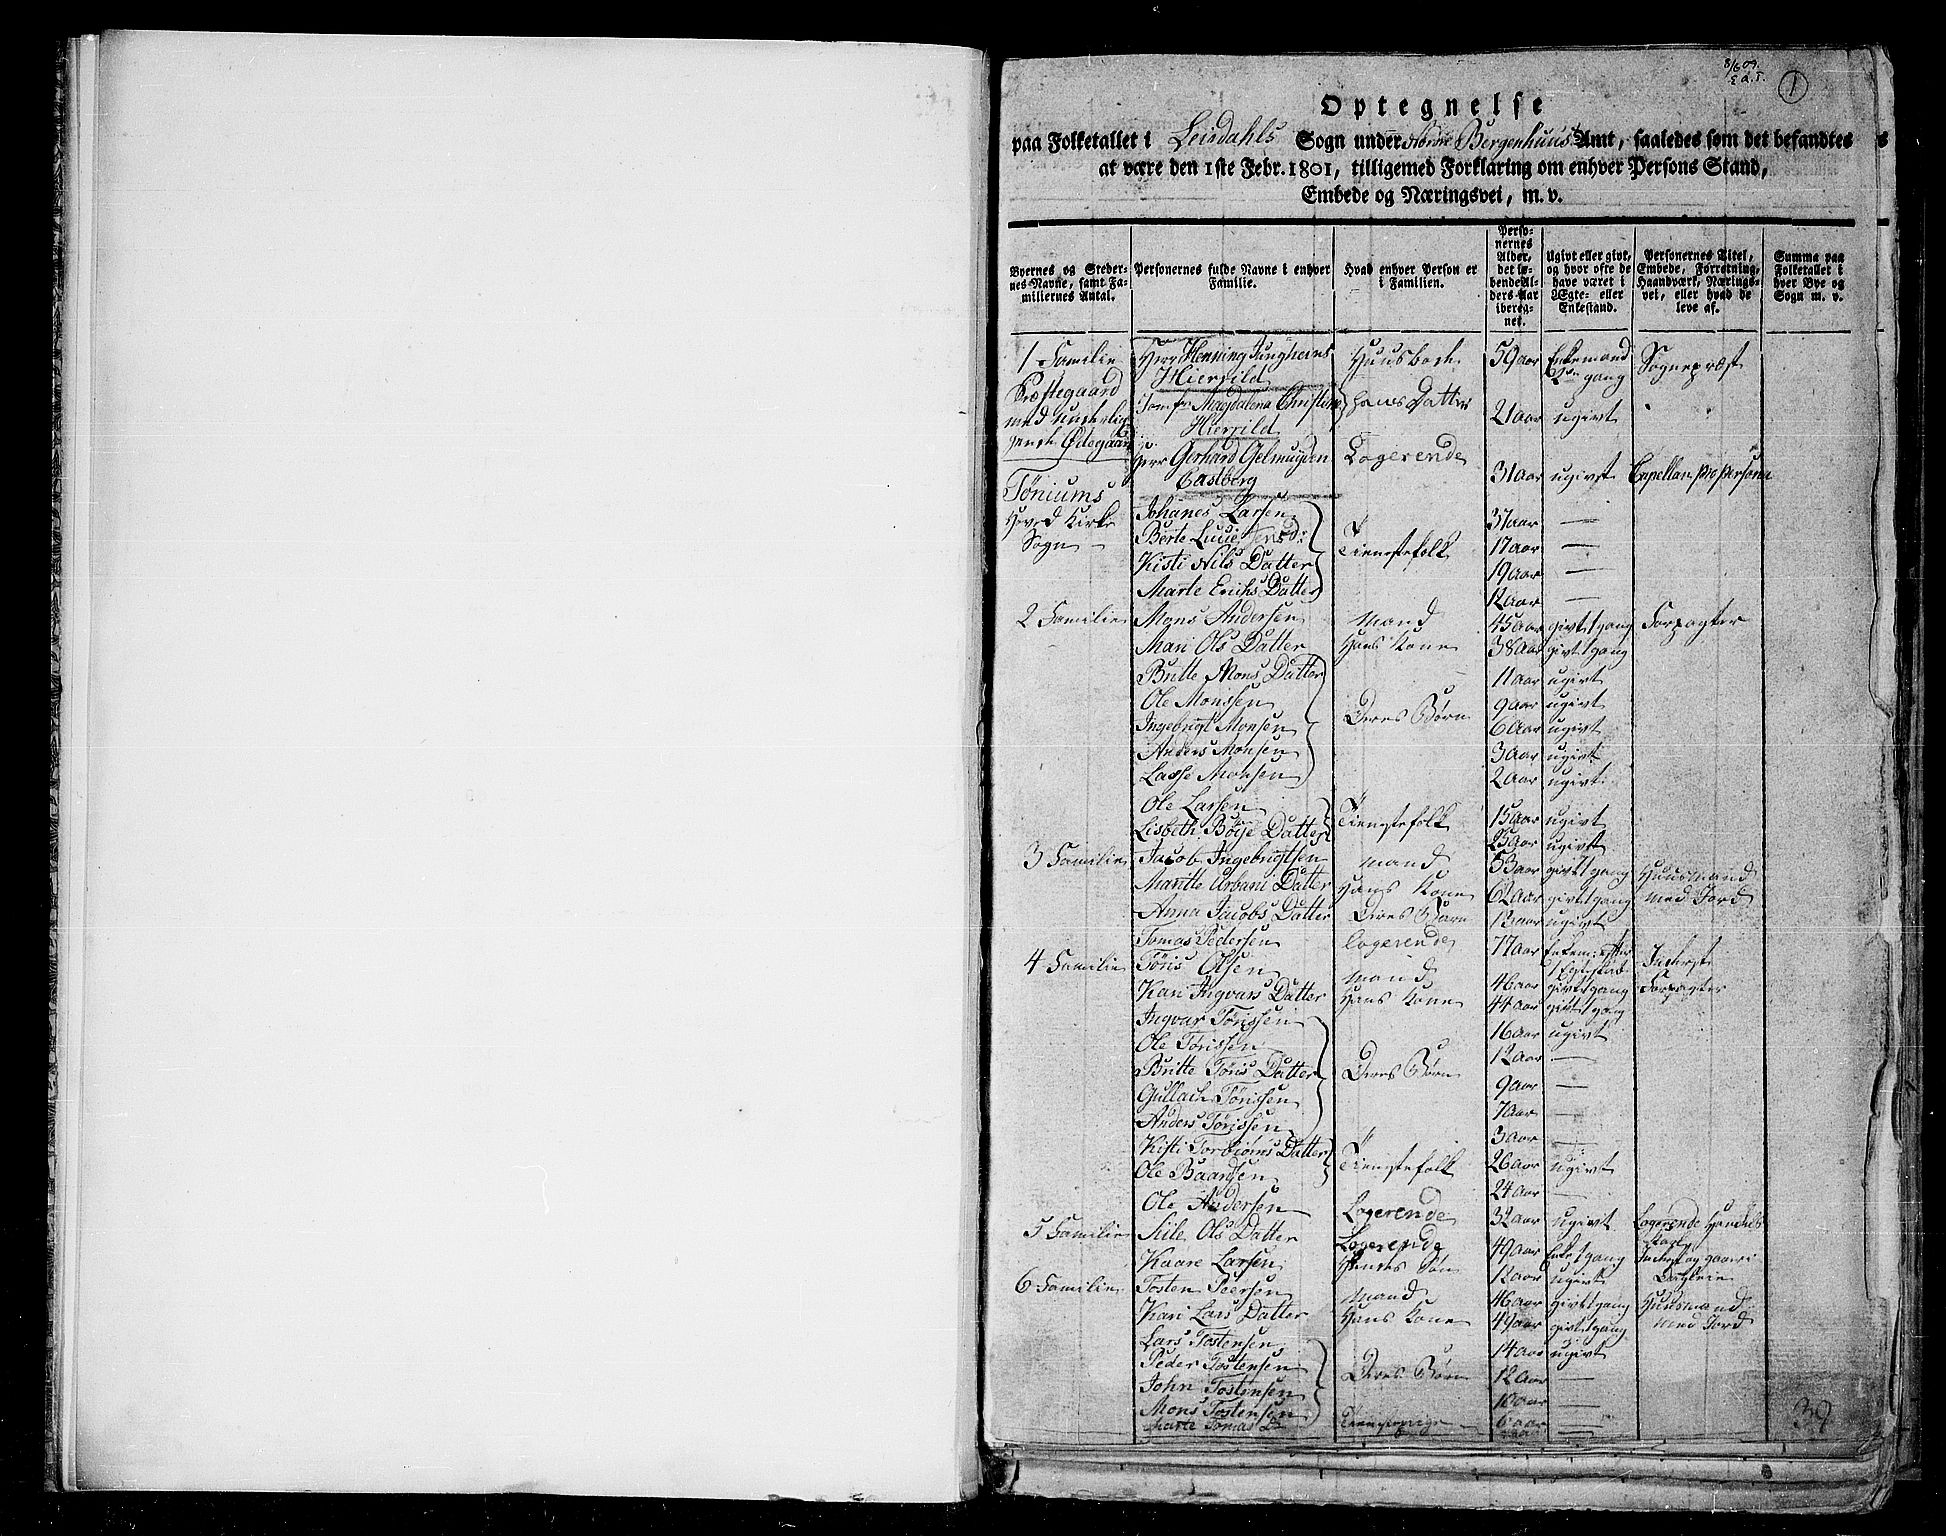 8/6 09.
E A. T.
1
Optegnelse
paa Folketallet i Leirdahls Sogn under Nordre Bergenhuus Amt, saaledes som det befandtes
at være den 1ste Febr. 1801, tilligemed Forklaring om enhver Persons Stand,
Embede og Næringsvei, m. v.
Byernes og Steder-nes Navne, samt Fa-miliernes Antal.
Personernes fulde Navne i enhver Familie.
Hvad enhver Person er i Familien.
Perso-nernes Alder, det lø-bende Al-ders-Aar iberegnet.
Ugivt eller givt, og hvor ofte de have været i Ægte- eller Enkestand.
Personernes Titel, Embede, Forretning, Haandværk, Nærings-vei, eller hvad de leve af.
Summa paa Folketallet i hver Bye og Sogn m. v.
1 Familie Herr Henning Jungheins Hierrild Huusbond 59 aar Enkemand gang Sognepræst
Præstegaard med underlig-gende Ødegaard
Jomfr Magdalena Christine Hierrild hans Datter 21 aar ugivt
Herr Gerhard Gelmuyden Castberg Logerende 31 aar ugivt Capellan pro persona
Tøniums Hoved Kirke Sogn
Johanes Larsen 37 aar —
Berte Lucie Jensd: Tienestefolk 17 aar —
Kisti Nils Datter 19 aar —
Marte Erichs Datter 12 aar —
2 Familie Mons Andersen Mand 45 aar givt 1 gang Forpagter
Mari Ols Datter Hans Kone 38 aar givt 1 gang
Britte Mons Datter 11 aar ugivt
Ole Monssen 9 aar ugivt
Ingebrigt Monsen Deres Børn 6 aar ugivt
Anders Monsen 3 aar ugivt
Lasse Monsen 2 aar ugivt
Ole Larsen Tienestefolk 15 aar ugivt
Lisbeth Bøije Datter 25 aar ugivt
3 Familie Jacob Ingebrigtsen Mand 53 aar givt 1 gang Huusmand
Maritte Urbani Datter Hans Kone 62 aar givt 1 gang med Jord
Anna Jacobs Datter Deres Barn 12 aar ugivt
Tomas Pedersen Logerende 77 aar Enkem: efter 1 Egteskab Inderst
4 Familie Tøris Olsen Mand 46 aar givt 1 gang Forpagter
Kari Ingvars Datter Hans Kone 44 aar givt 1 gang
Ingvar Tørissen 16 aar ugivt
Ole Tørissen 12 aar —
Britte Tøris Datter Deres Børn 9 aar —
Gullach Tørissen 7 aar —
Anders Tørissen 3 aar —
Kisti Torbiørns Datter Tienestefolk 26 aar ugivt
Ole Baardsen 24 aar —
Ole Andersen Logerende 32 aar ugivt Logerende Handels Karl
5 Familie Sille Ols Datter Logerende 49 aar Enke 1 gang Inderst og gaaer i
Kaare Larsen Hendes Søn 12 aar ugivt Dagleie
6 Familie Tosten Peersen Mand 46 aar givt 1 gang Huusmand
Kari Lars Datter Hans Kone 49 aar givt 1 gang med Jord
Lars Tostensen 14 aar ugivt
Peder Tostensen Deres Børn 12 aar —
John Tostensen 10 aar —
Mons Tostensen 6 aar —
Marte Tomas D Tienestepige —
39